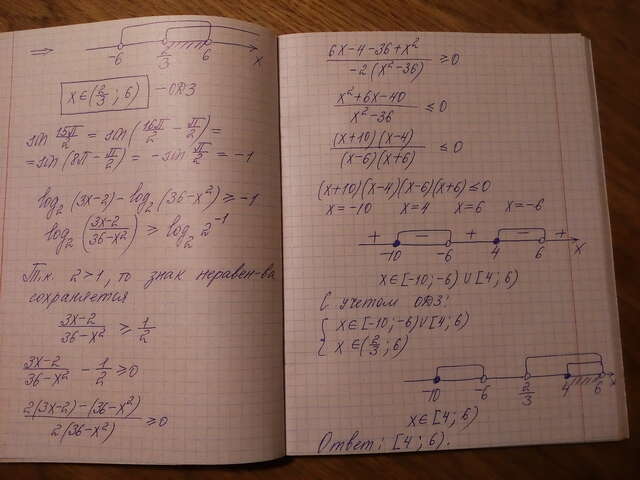 ⇒ -6 2/3 6 x
x∈(2/3; 6) - ОДЗ
sin 15π/2 = sin(16π/2 - π/2) =
= sin(8π - π/2) = -sin π/2 = -1
log₂(3x-2) - log₂(36-x²) ≥ -1
log₂(3x-2/36-x²) ≥ log₂ 2⁻¹
Т.к. 2>1, то знак неравен-ва
сохраняется
3x-2/36-x² ≥ 1/2
3x-2/36-x² - 1/2 ≥ 0
2(3x-2)-(36-x²)/2(36-x²) ≥ 0
6x-4-36+x²/-2(x²-36) ≥ 0
x²+6x-40/x²-36 ≤ 0
(x+10)(x-4)/(x-6)(x+6) ≤ 0
(x+10)(x-4)(x-6)(x+6) ≤ 0
x=-10 x=4 x=6 x=-6
+ - + - +
-10 -6 4 6 x
x∈[-10; -6) ∪ [4; 6)
С учетом ОДЗ:
{ x∈[-10; -6) ∪ [4; 6)
x∈(2/3; 6)
-10 -6 2/3 4 6 x
x∈[4; 6)
Ответ: [4; 6).